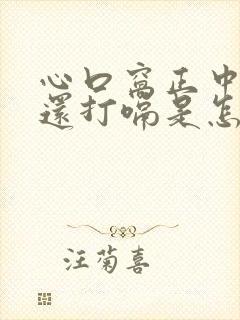 心口窩正中
還打嗝是怎
汪菊喜